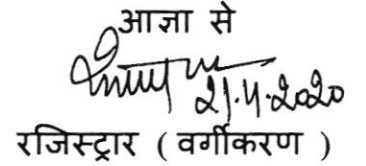 आज्ञा से
21.4.2020
रजिस्ट्रार ( वर्गीकरण )